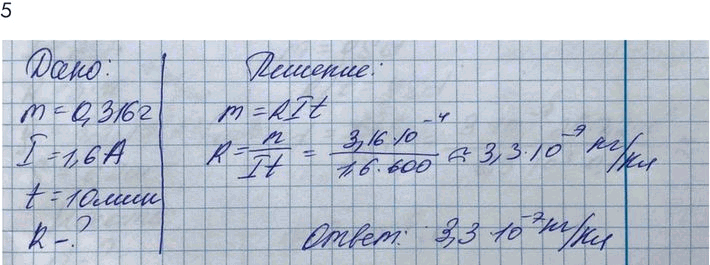 5
Дано:
m = 0,316г
I = 1,6 А
t = 10мин
k - ?
Решение:
m = kIt
k = m/It = 3,16·10⁻⁴/1,6·600 ≈ 3,3·10⁻⁹ кг/кл
Ответ: 3,3·10⁻⁷ кг/кл